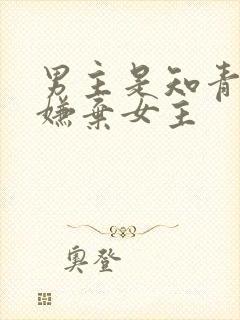 男主是知青
嫌弃女主
奥登